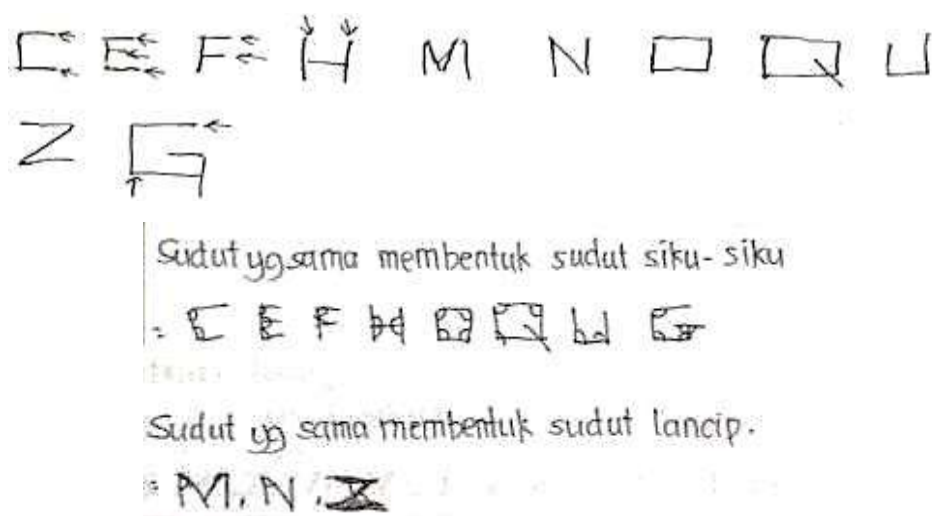 C E F H M N O Q U
Z G
Sudut yg sama membentuk sudut siku-siku
= C E F H O Q U G
Sudut yg sama membentuk sudut lancip.
= M, N, Z